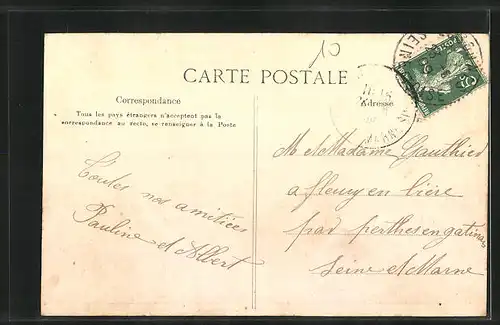 10
CARTE POSTALE
Correspondance
Adresse
Tous les pays étrangers n'acceptent pas la
correspondance au recto, se renseigner à la Poste
Toutes nos amitiées
Pauline et Albert
M et Madame Gauthier
a fleury en bière
par perthes en gatinais
Seine et Marne